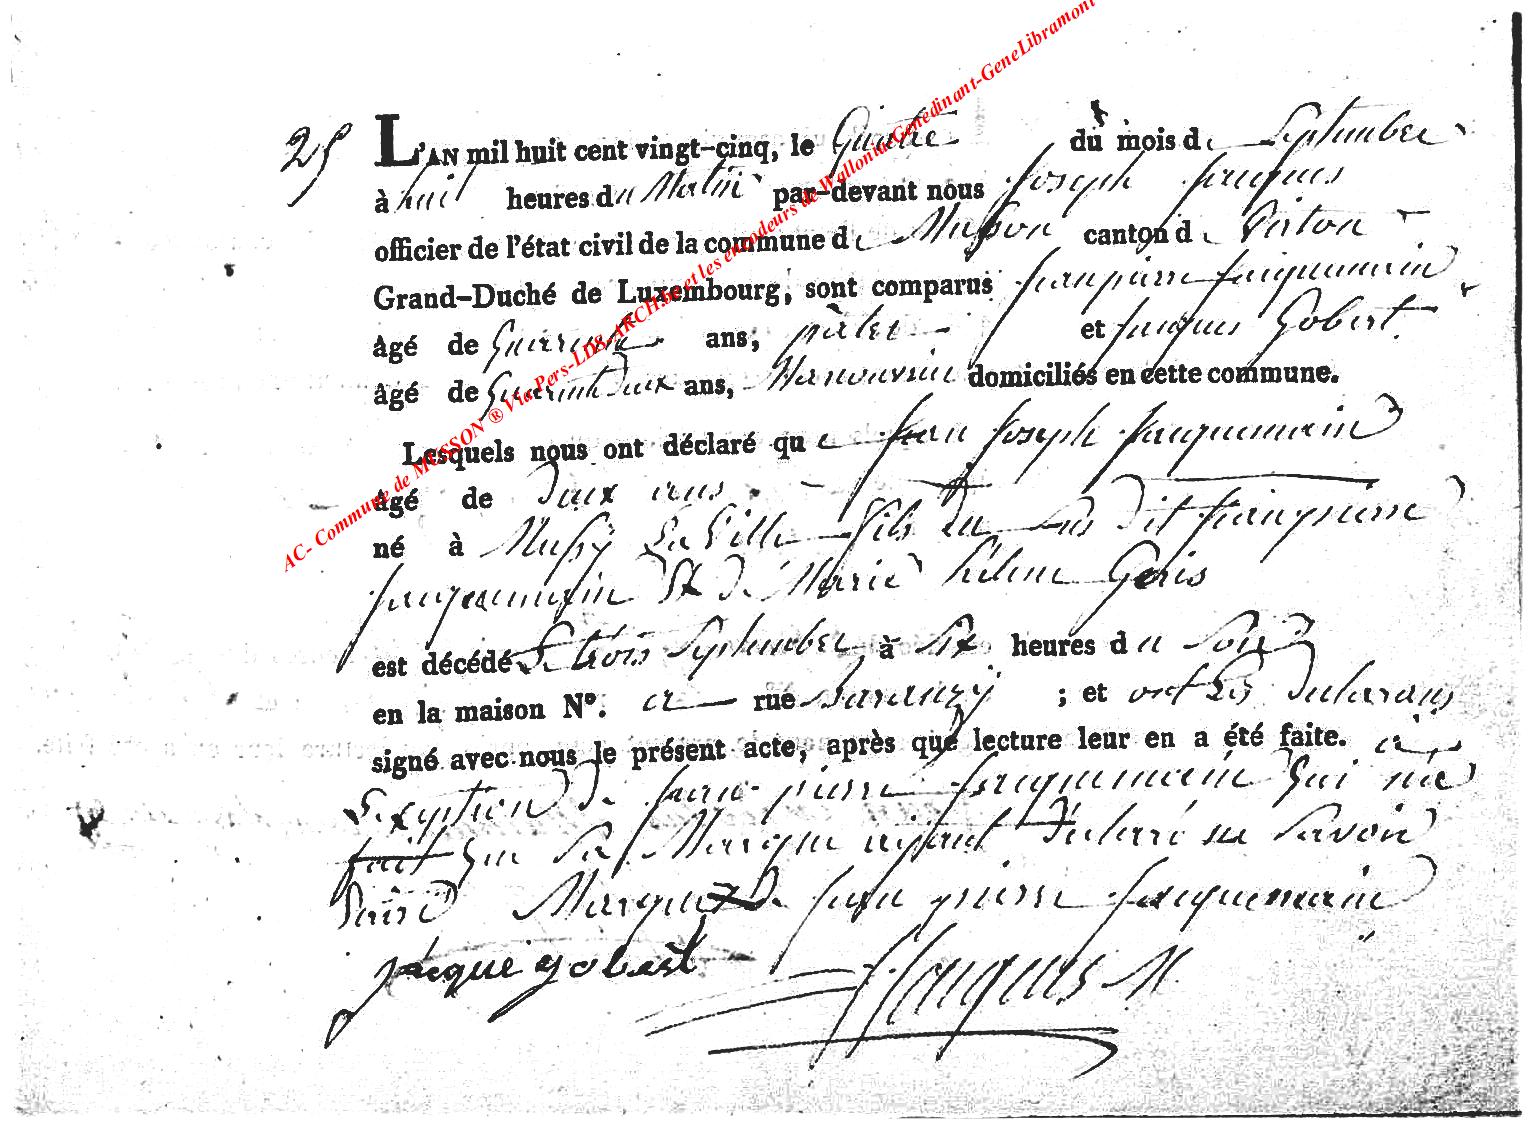 25
L'AN mil huit cent vingt-cinq, le Quatre du mois de Septembre
à huit heures du Matin par-devant nous Joseph Jacques
officier de l'état civil de la commune de Musson canton de Virton
Grand-Duché de Luxembourg, sont comparus jean pierre jacquemain
âgé de Quarante ans, et jacques Gobert
âgé de Quarante Deux ans, Manouvrier domiciliés en cette commune.
Lesquels nous ont déclaré que jean joseph jacquemain
âgé de Deux ans
né à Mussy La Ville fils du Sus Dit jean pierre
jacquemain Et De Marie héléne Goris
est décédé Le trois Septembre à Six heures du Soir
en la maison N°. a rue Baranzy ; et ont Les Declarans
signé avec nous le présent acte, après que lecture leur en a été faite. à
L'exseption De jean pierre jacquemain Qui n'a
fait Que Sa Marque aiyant Declaré ne Savoir
faire Marque De jean pierre jacquemain
jacque gobert J Jacques M
AC- Commune de MUSSON ® Via Pers-LDS-ARCH.be et les encodeurs de Wallonie-Genedinant-GeneLibramont